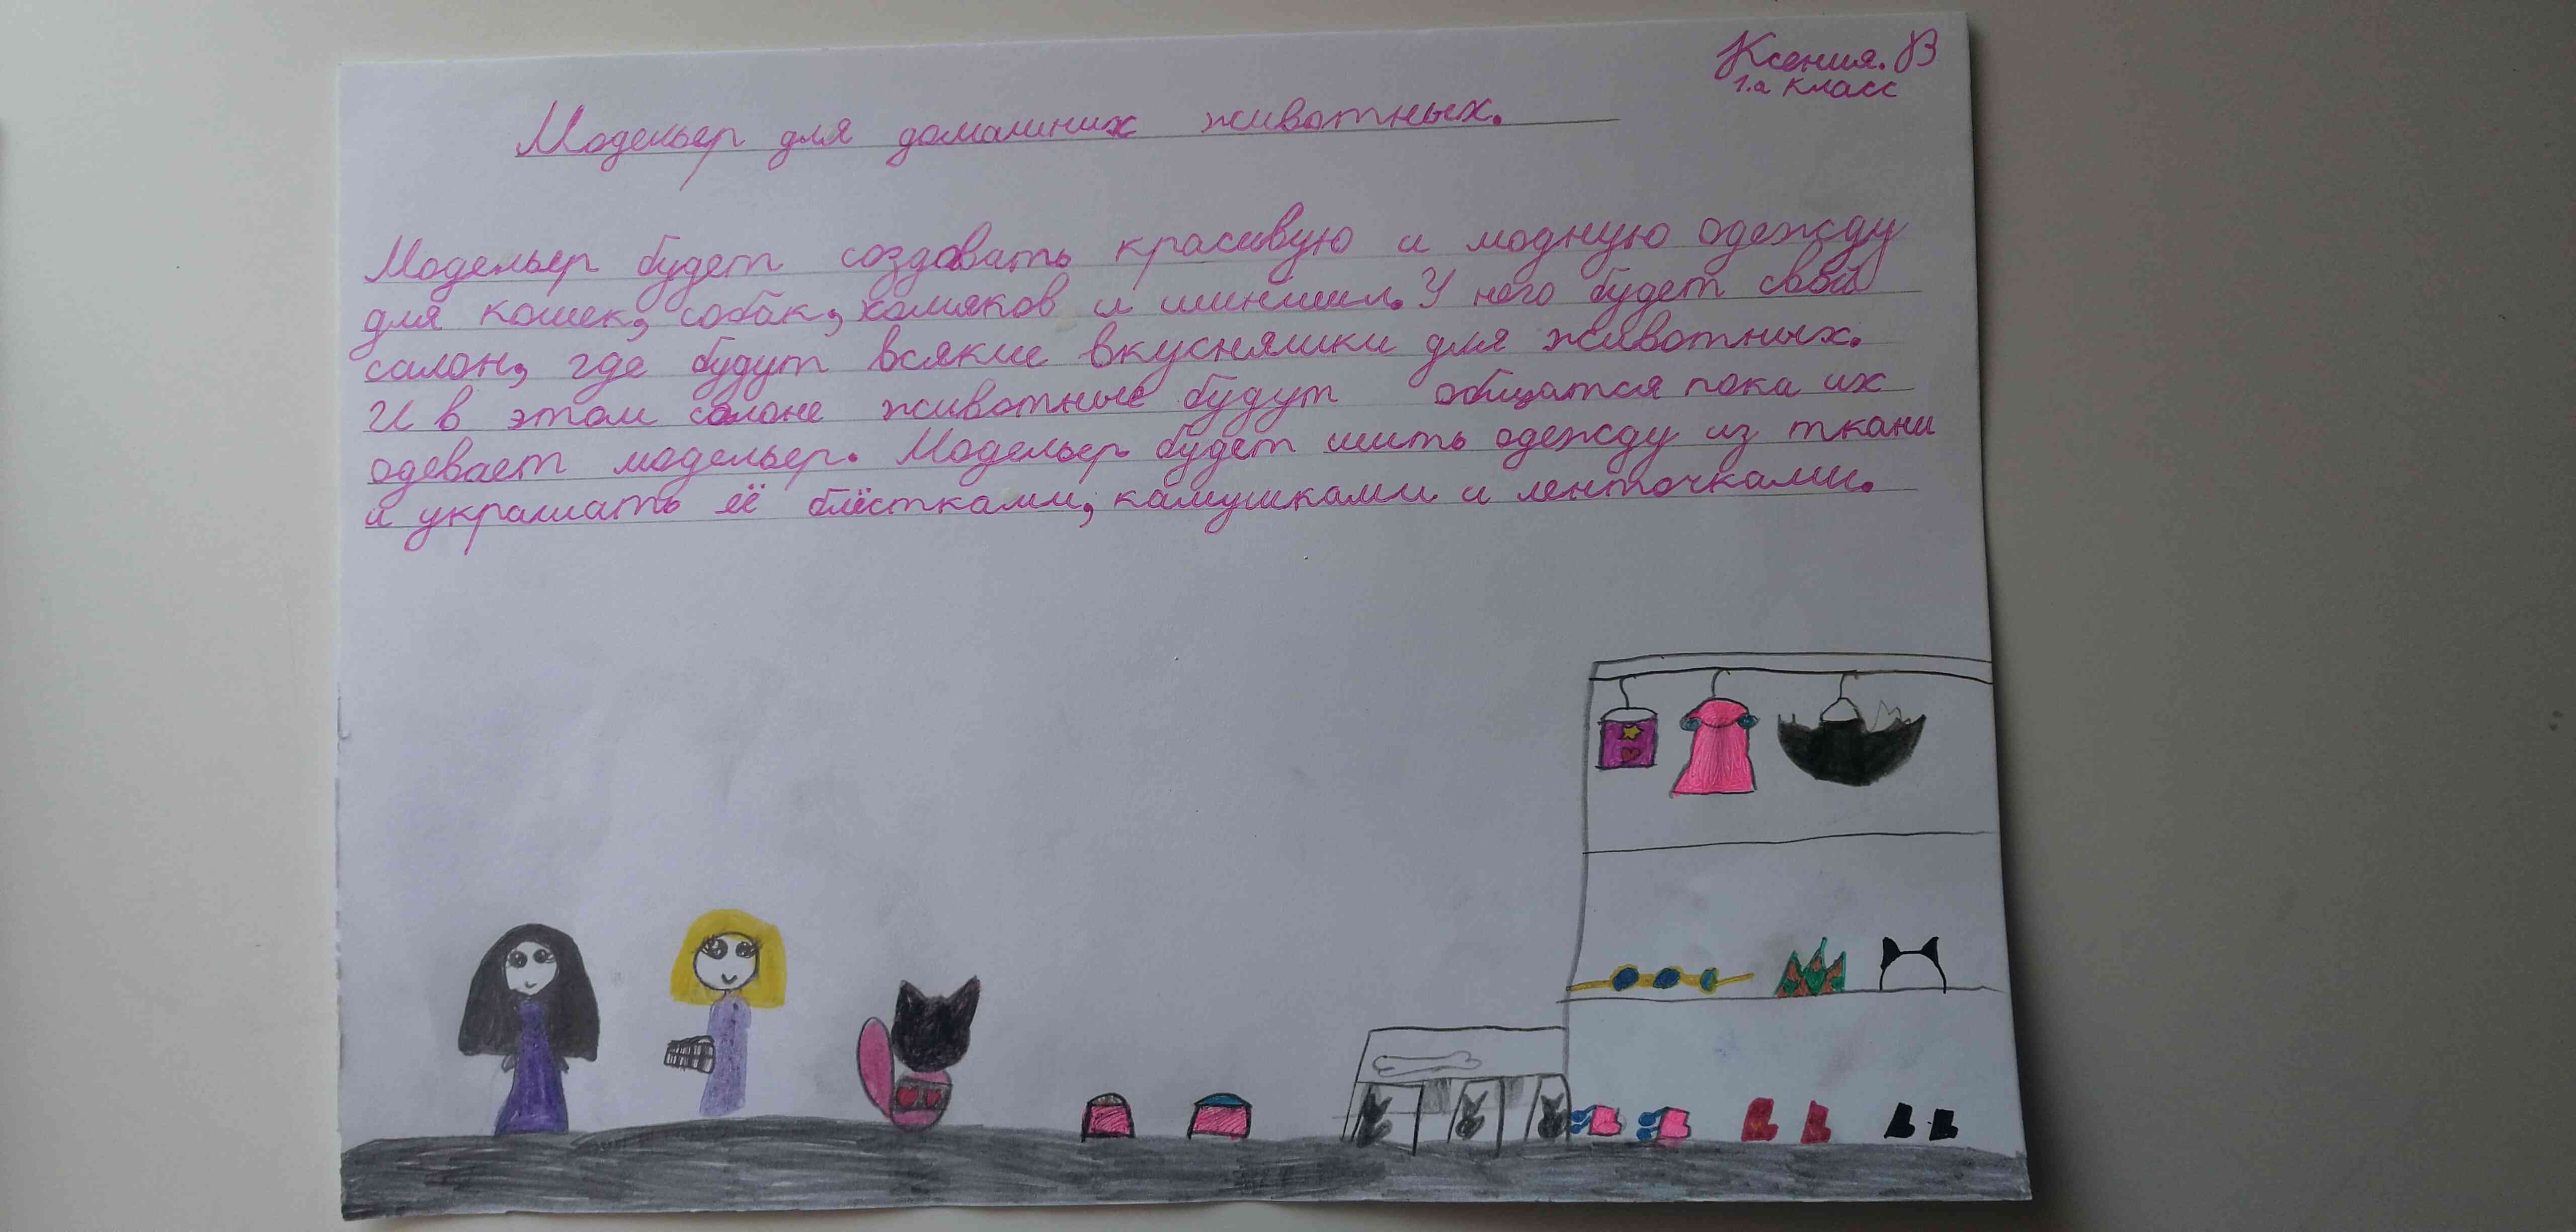 Ксения. В
1.а класс
Модельер для домашних животных.
Модельер будет создовать красивую и модную одежду
для кошек, собак, хомяков и шиншил. У него будет свой
салон, где будут всякие вкусняшки для животных.
И в этом салоне животные будут общатся пока их
одевает модельер. Модельер будет шить одежду из ткани
и украшать её блёстками, камушками и ленточками.